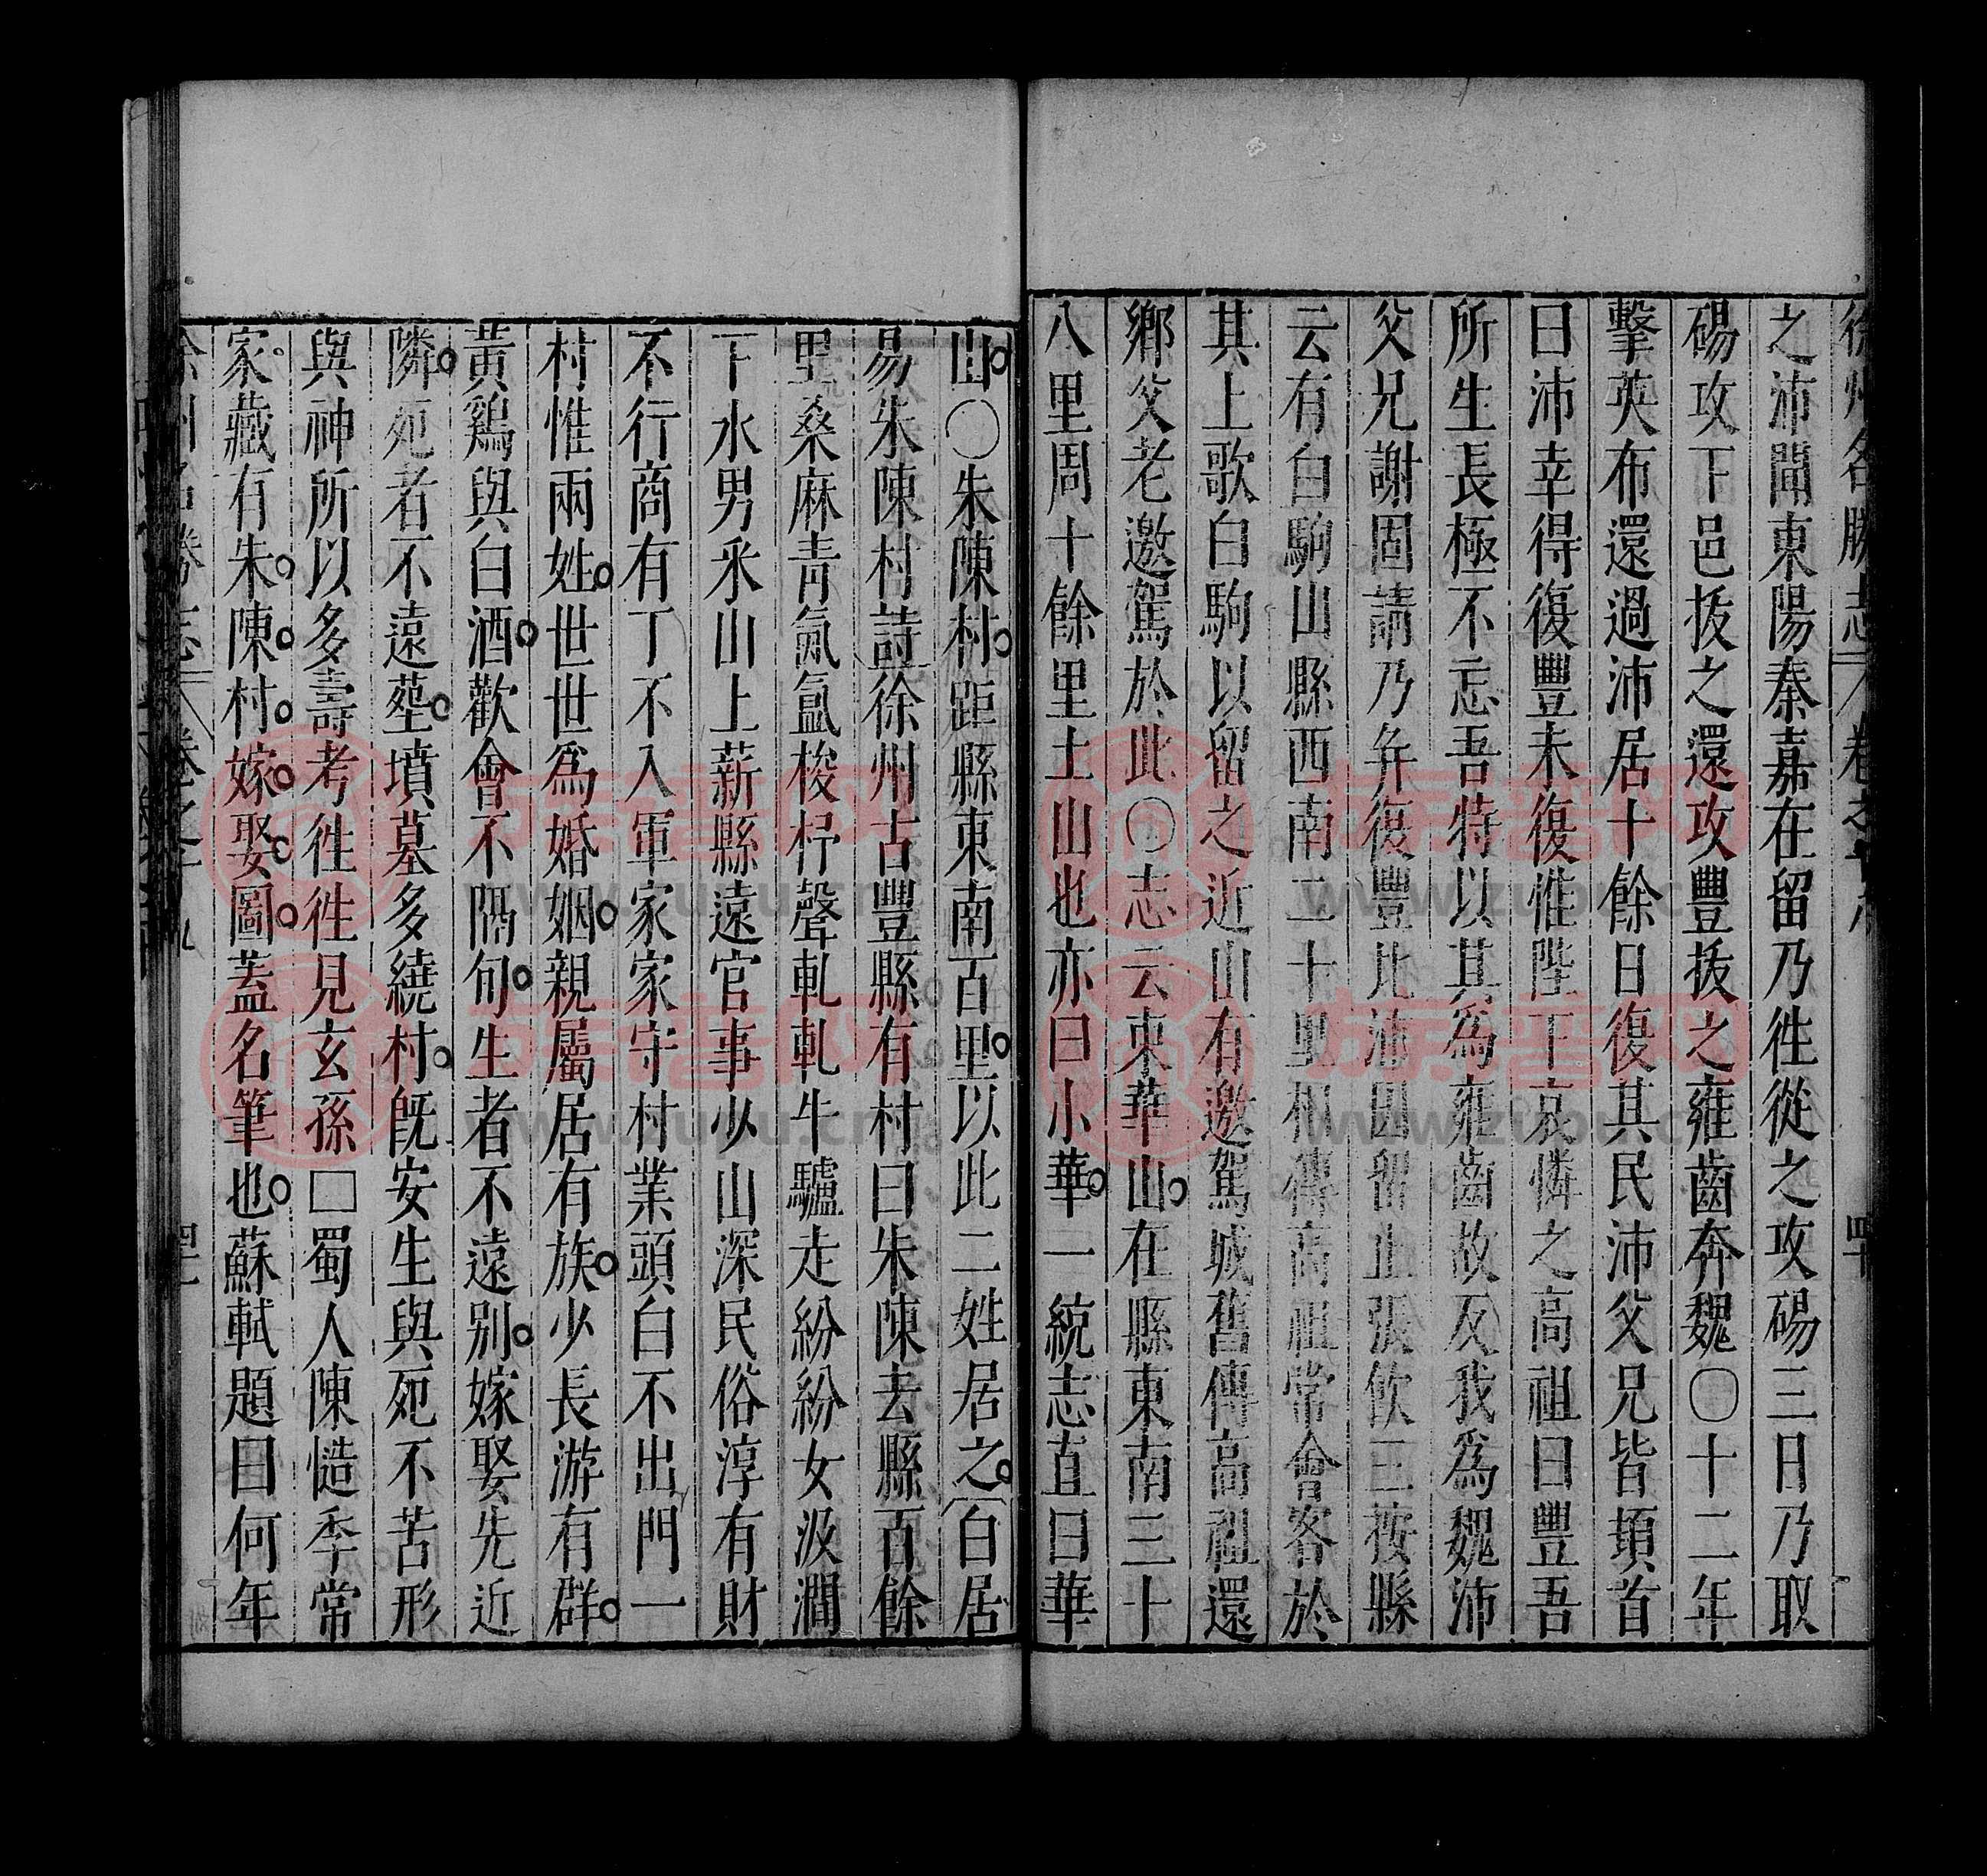 徐州名勝志 卷之十九 四十
之沛聞東陽秦嘉在留乃徃從之攻碭三日乃取
碭攻下邑拔之還攻豐拔之雍齒奔魏〇十二年
擊英布還過沛居十餘日復其民沛父兄皆頓首
曰沛幸得復豐未復惟陛下哀憐之高祖曰豐吾
所生長極不忘吾特以其為雍齒故反我為魏沛
父兄謝固請乃并復豐比沛因留止張飲三按縣
云有白駒山縣西南二十里相傳高祖常會客於
其上歌白駒以留之近山有邀駕城舊傳高祖還
鄉父老邀駕於此〇志云東華山在縣東南三十
八里周十餘里土山也亦曰小華一統志直曰華
山〇朱陳村距縣東南百里以此二姓居之白居
易朱陳村詩徐州古豐縣有村曰朱陳去縣百餘
里桑麻青氣氳梭杼聲軋軋牛驢走紛紛女汲澗
下水男采山上薪縣遠官事少山深民俗淳有財
不行商有丁不入軍家家守村業頭白不出門一
村惟兩姓世世爲婚姻親屬居有族少長游有群
黃鷄與白酒歡會不隔旬生者不遠别嫁娶先近
隣死者不遠塟墳墓多繞村既安生與死不苦形
與神所以多壽考徃徃見玄孫□蜀人陳慥季常
家藏有朱陳村嫁娶圖蓋名筆也蘇軾題曰何年
徐州名勝志 卷之十九 四十一
族譜网
www.zupu.cn
族譜网
www.zupu.cn
族譜网
www.zupu.cn
族譜网
www.zupu.cn